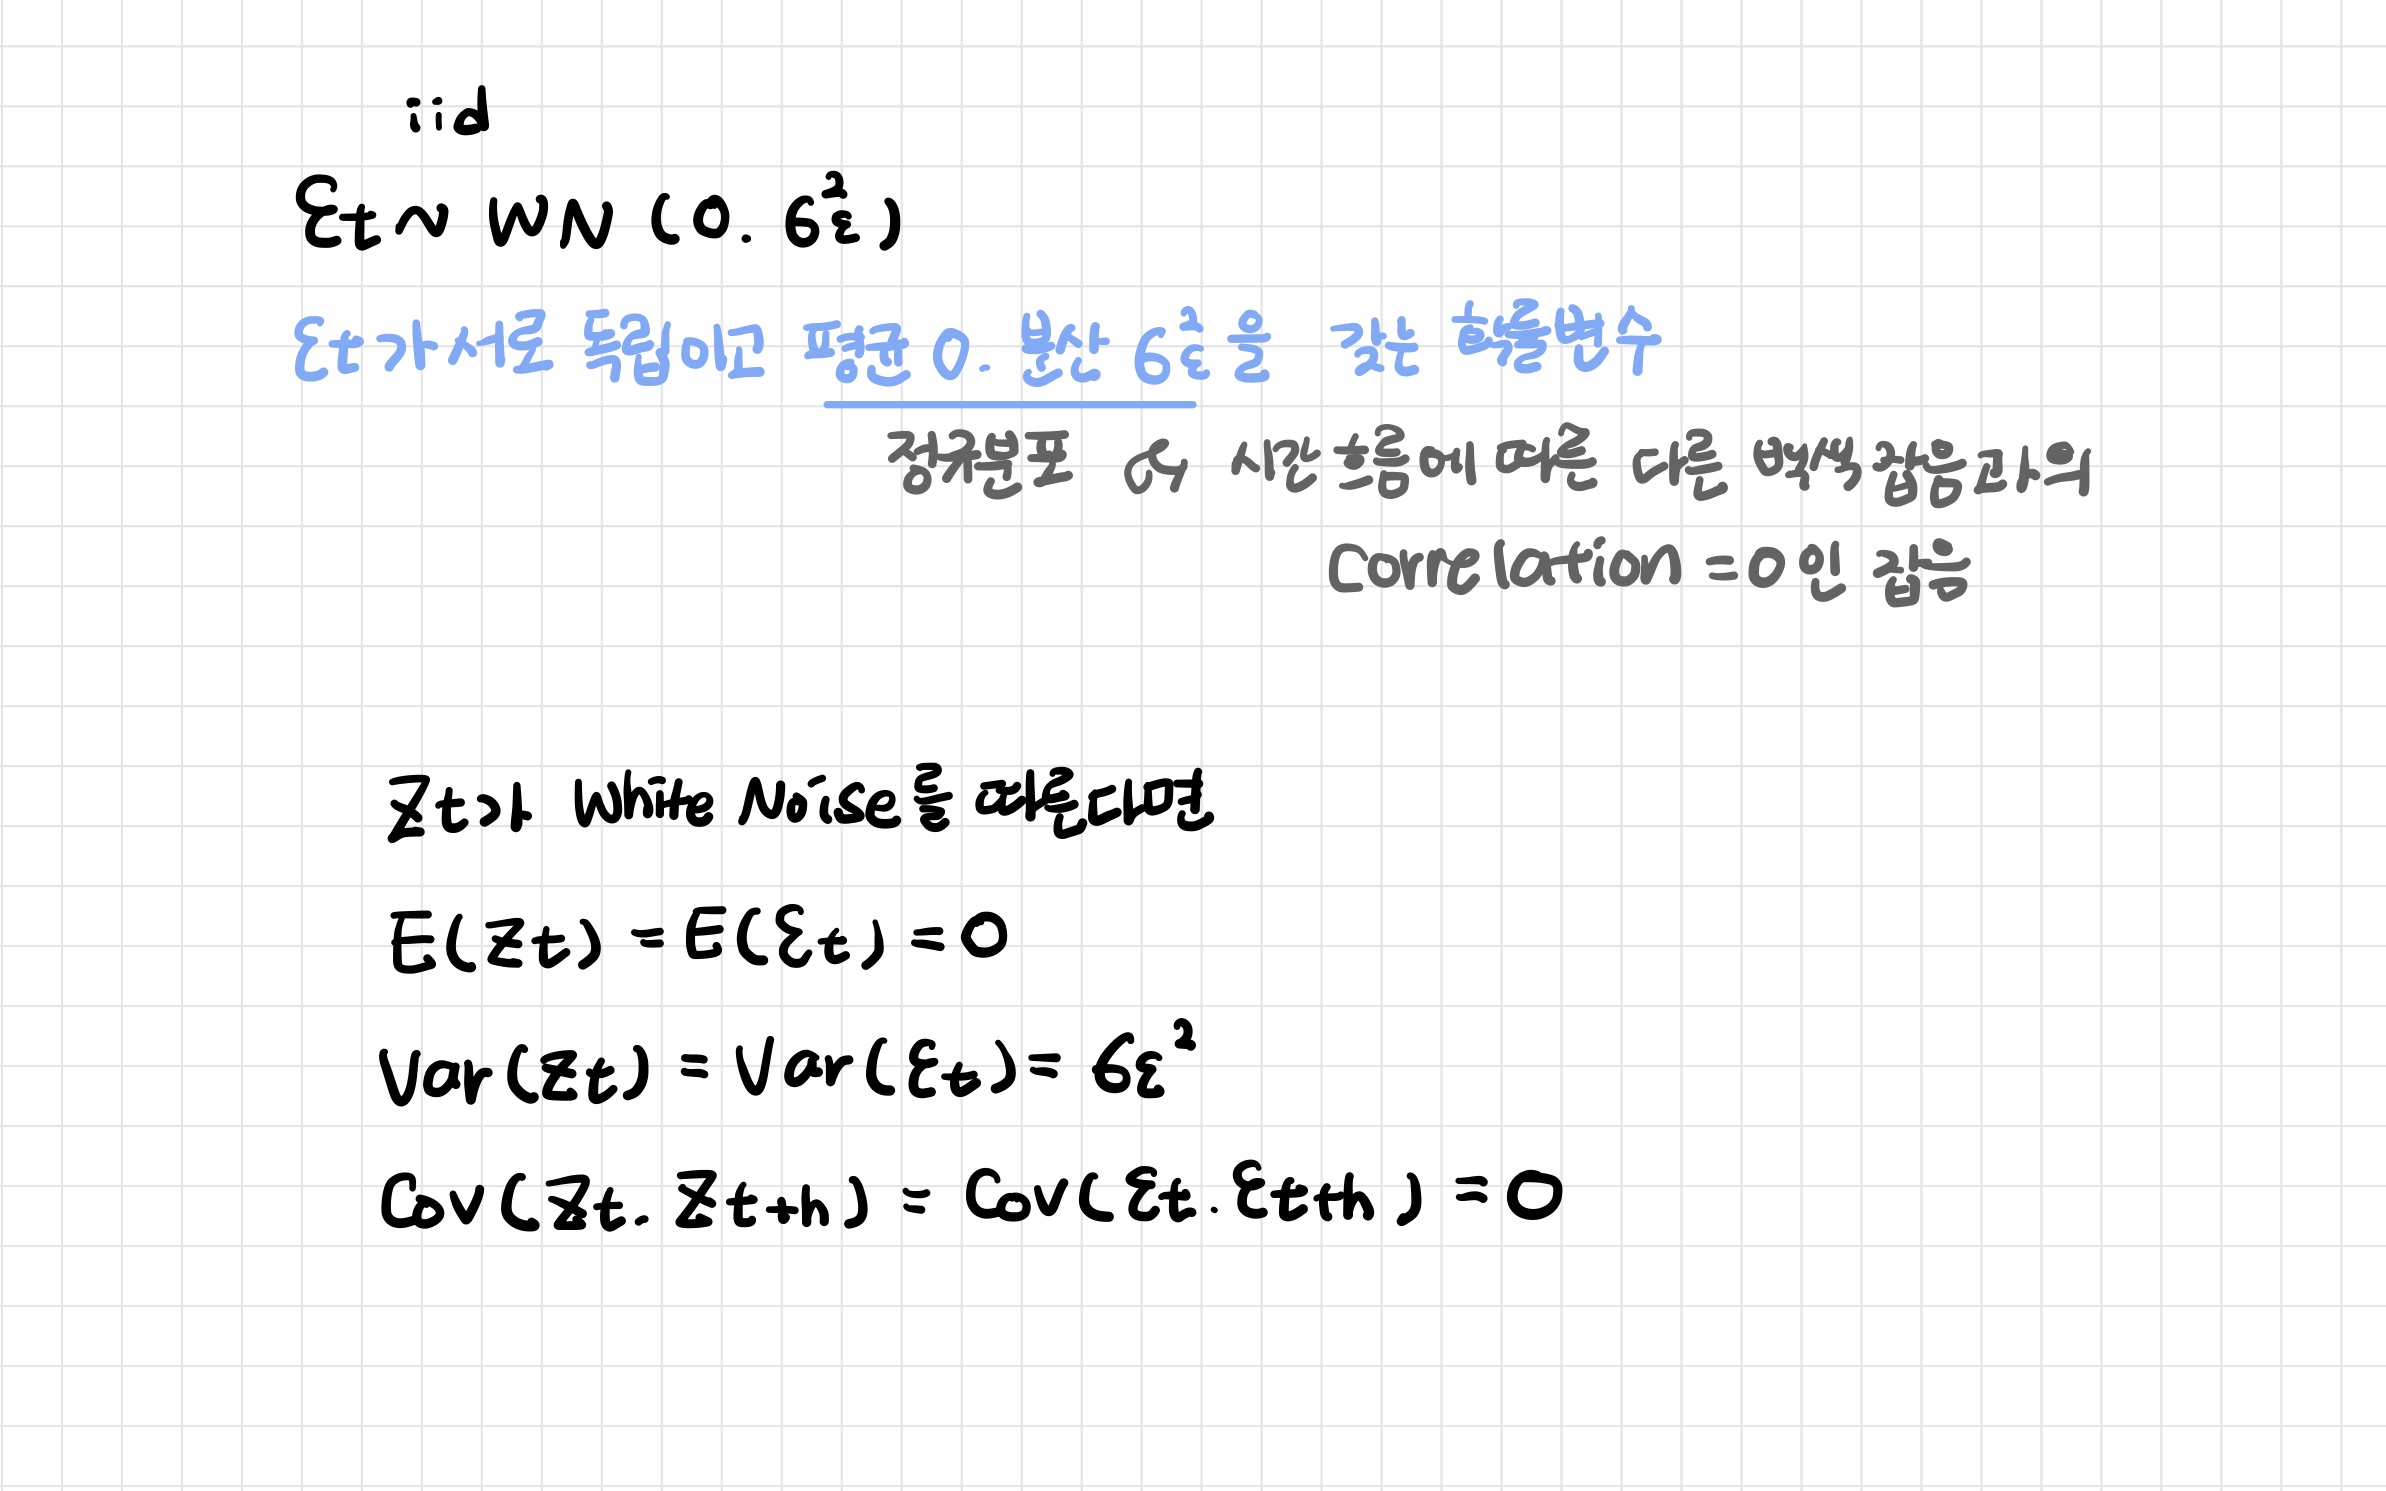 iid
εt ~ WN (0. σ²ε)
εt가 서로 독립이고 평균 0. 분산 σ²ε을 갖는 확률변수
정규분포 & 시간 흐름에 따른 다른 백색 잡음과의
Correlation = 0인 잡음
Zt가 White Noise를 따른다면
E(Zt) = E(εt) = 0
Var(Zt) = Var(εt) = σε²
Cov(Zt. Zt+h) = Cov(εt. εt+h) = 0